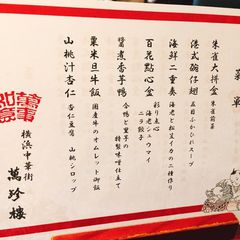 菜単
朱雀大拼盆
朱雀前菜
港式碗仔翅
五目ふかひれスープ
海鮮二重奏
海老と松笠イカの二種作り
百花點心盒
彩り点心
海老シュウマイ
ニラ餃子
醬煮香芋鴨
合鴨と里芋の
特製味噌仕立て
粟米旦牛飯
国産牛のオムレット御飯
山桃汁杏仁
杏仁豆腐 山桃シロップ
横浜中華街
萬珍樓